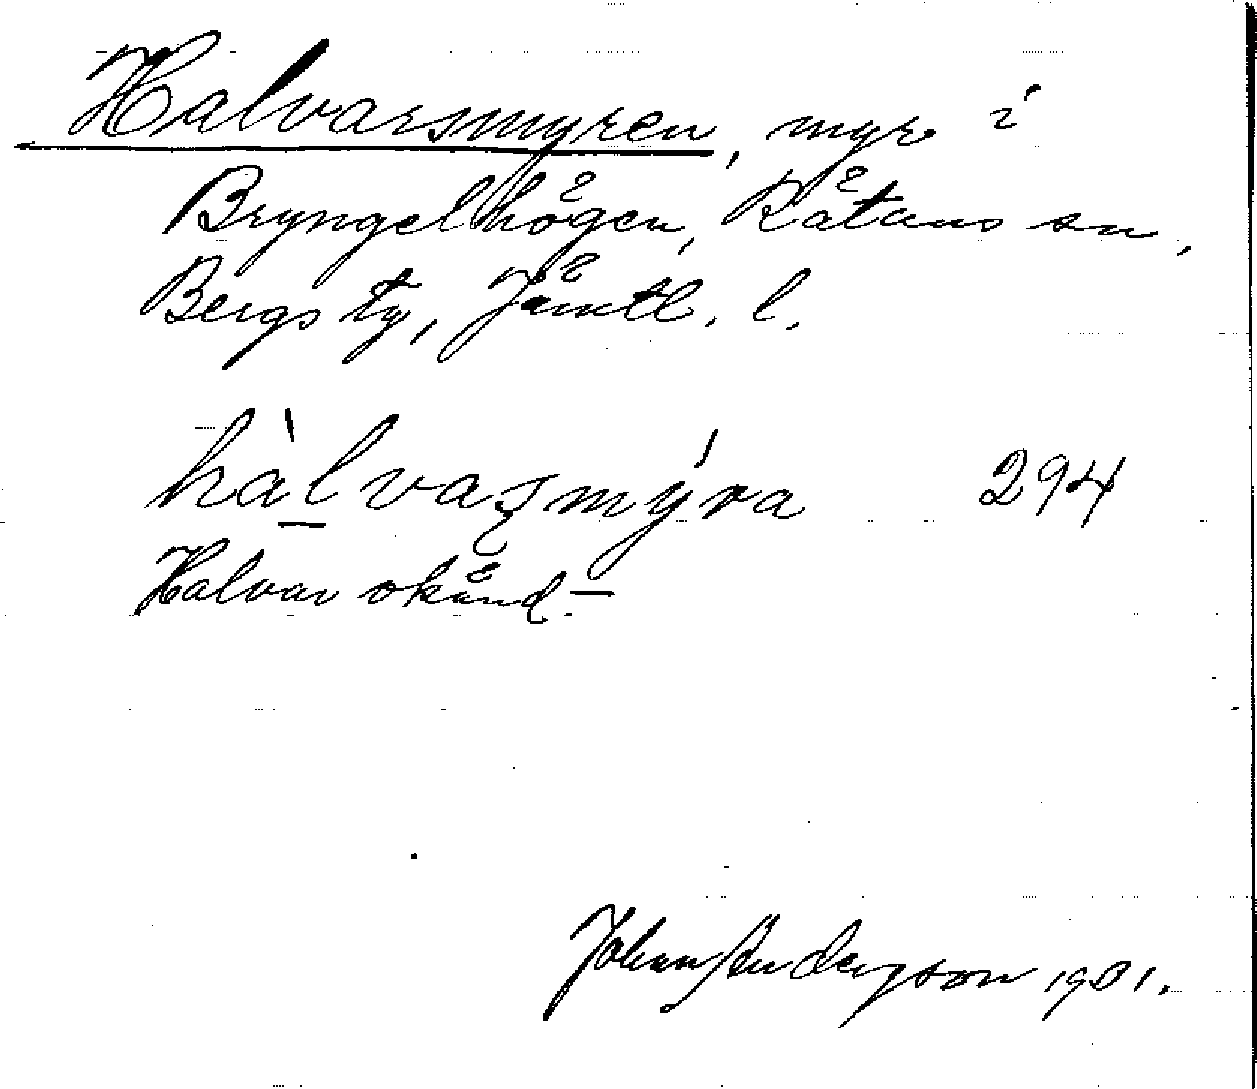 Halvarsmyren, myr i
Bryngelhögen, Råtans sn,
Bergs tg, Jämtl. l.
hàlvaʂmýra 294
Halvar okänd. —
Johan Anderson 1901.